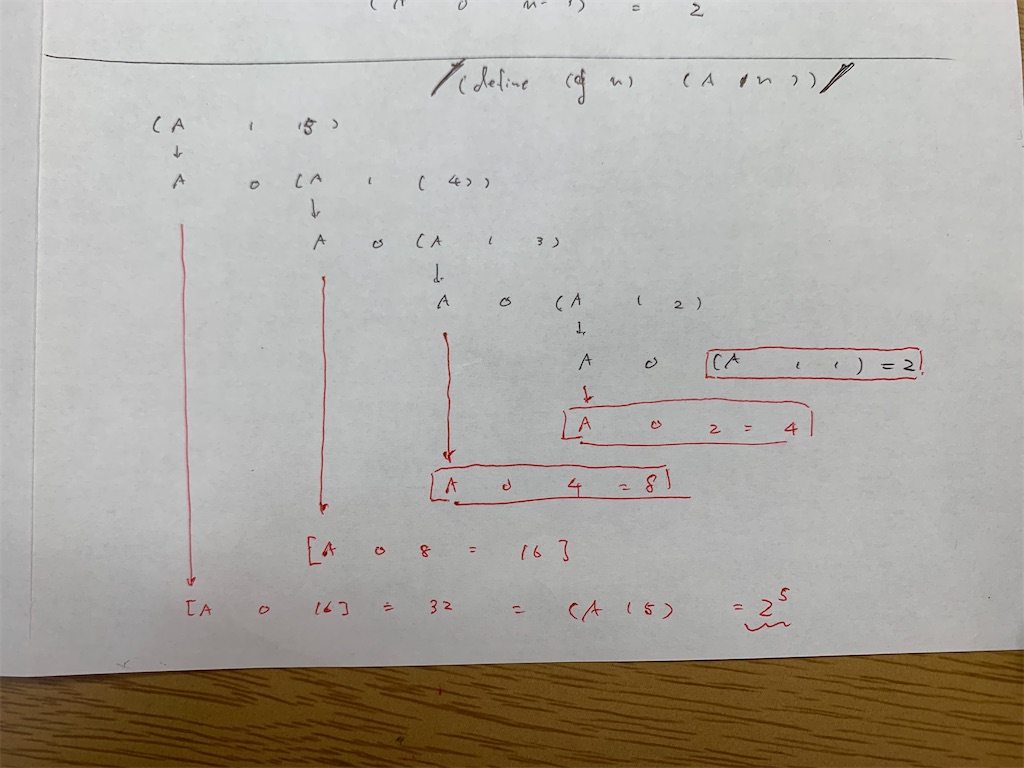 (A 0 n-1) = 2
(define (g n) (A 1 n))
(A 1 5)
A 0 (A 1 (4))
A 0 (A 1 3)
A 0 (A 1 2)
A 0 (A 1 1) = 2
A 0 2 = 4
A 0 4 = 8
[A 0 8 = 16]
[A 0 16] = 32 = (A 1 5) = 2⁵